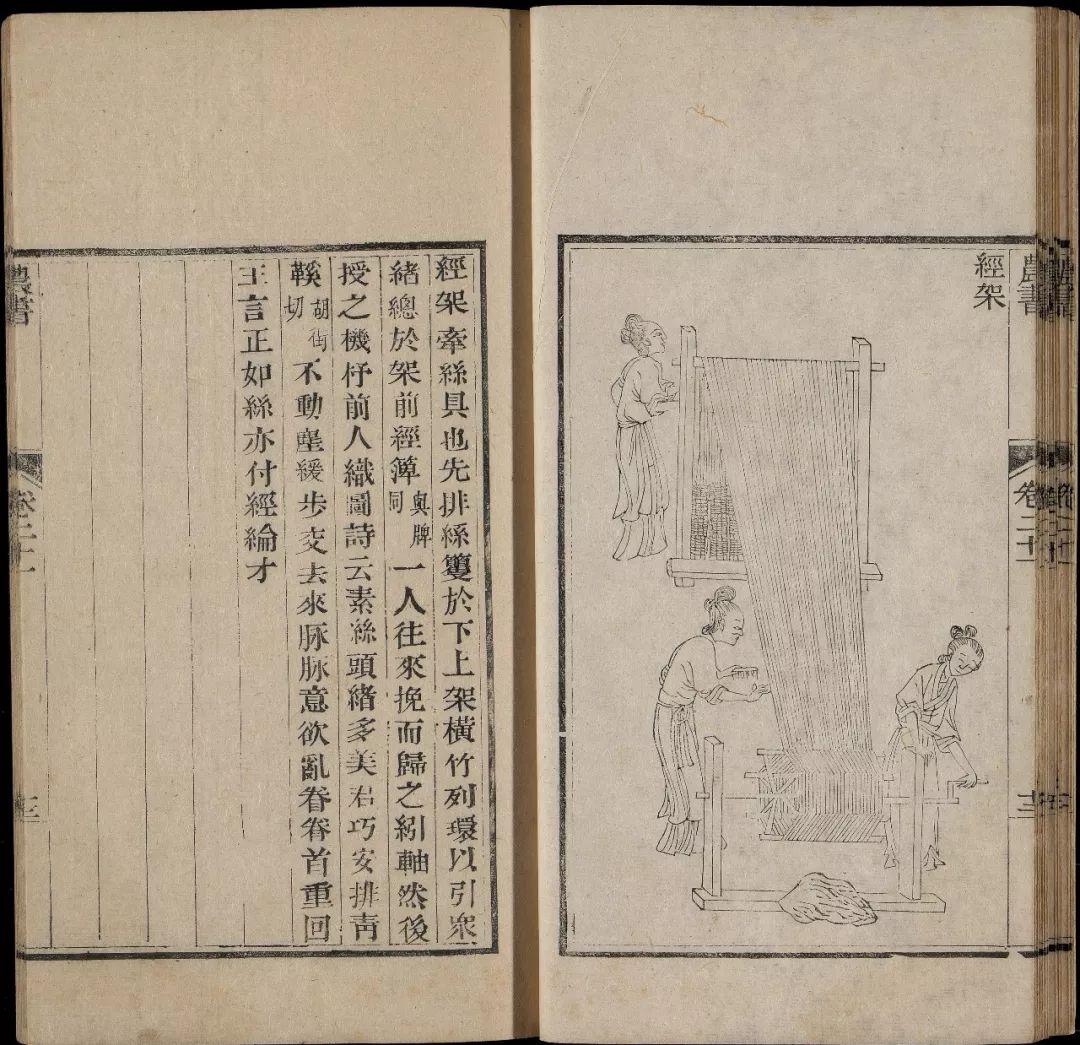 農書
卷二十
經架
經架牽絲具也先排絲籰於下上架橫竹列環以引衆
緒總於架前經簰與牌同一人往來挽而歸之紖軸然後
授之機杼前人織圖詩云素絲頭緒多羨君巧安排靑
鞵胡街切不動塵緩步交去來脉脉意欲亂眷眷首重回
王言正如絲亦付經綸才
農書